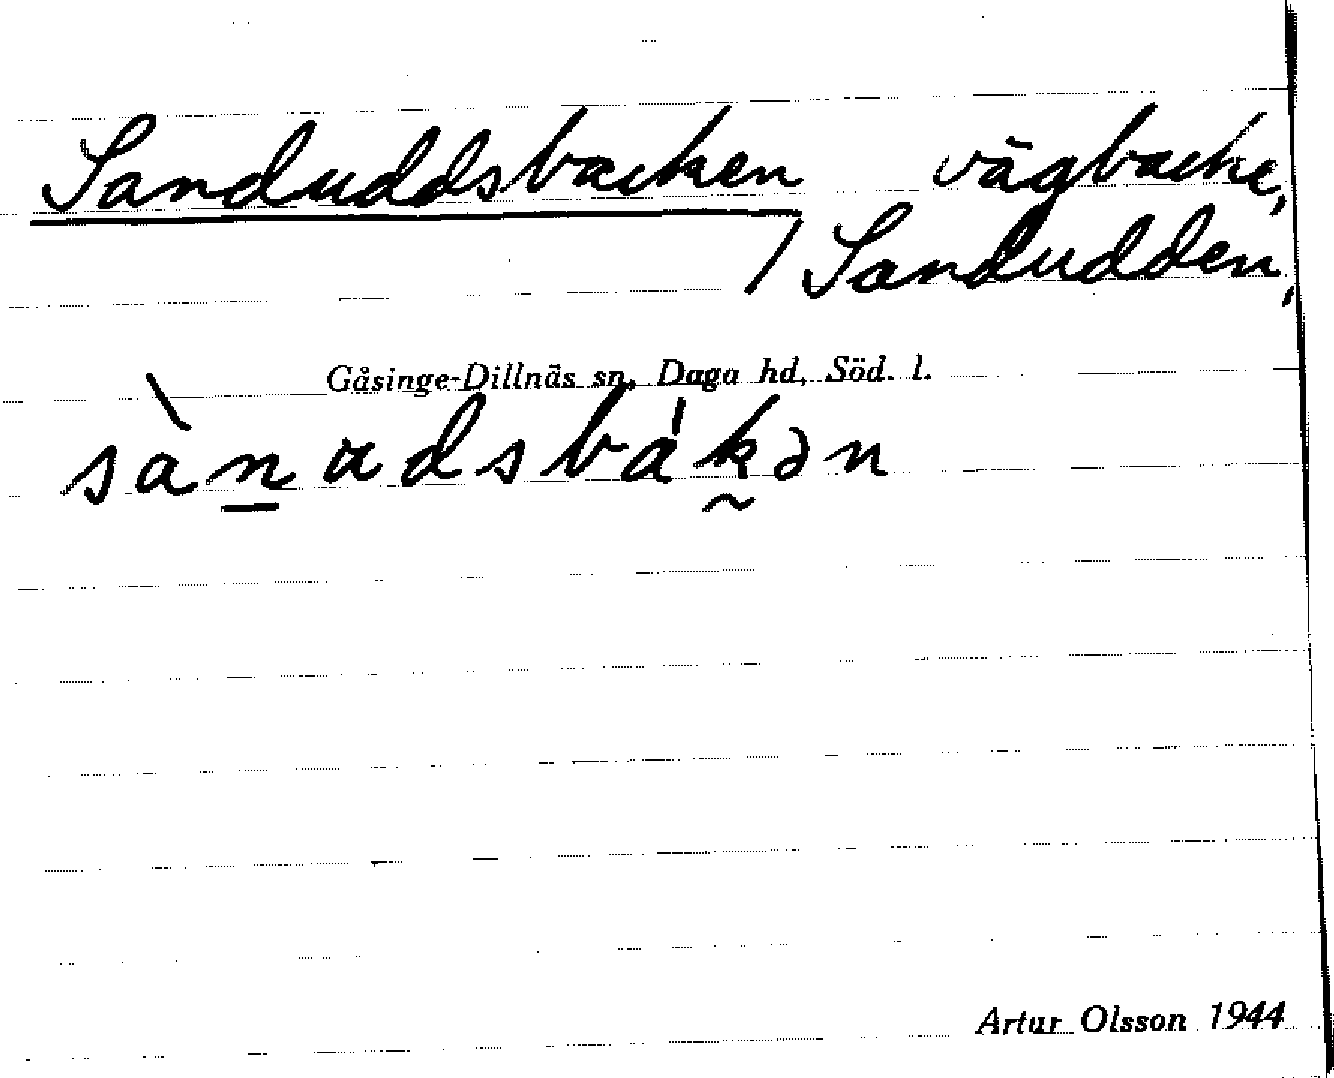 Sanduddsbacken vägbacke,
/ Sandudden,
Gåsinge-Dillnäs sn, Daga hd, Söd. l.
sàn̲ɑdsbák̰ən
Artur Olsson 1944